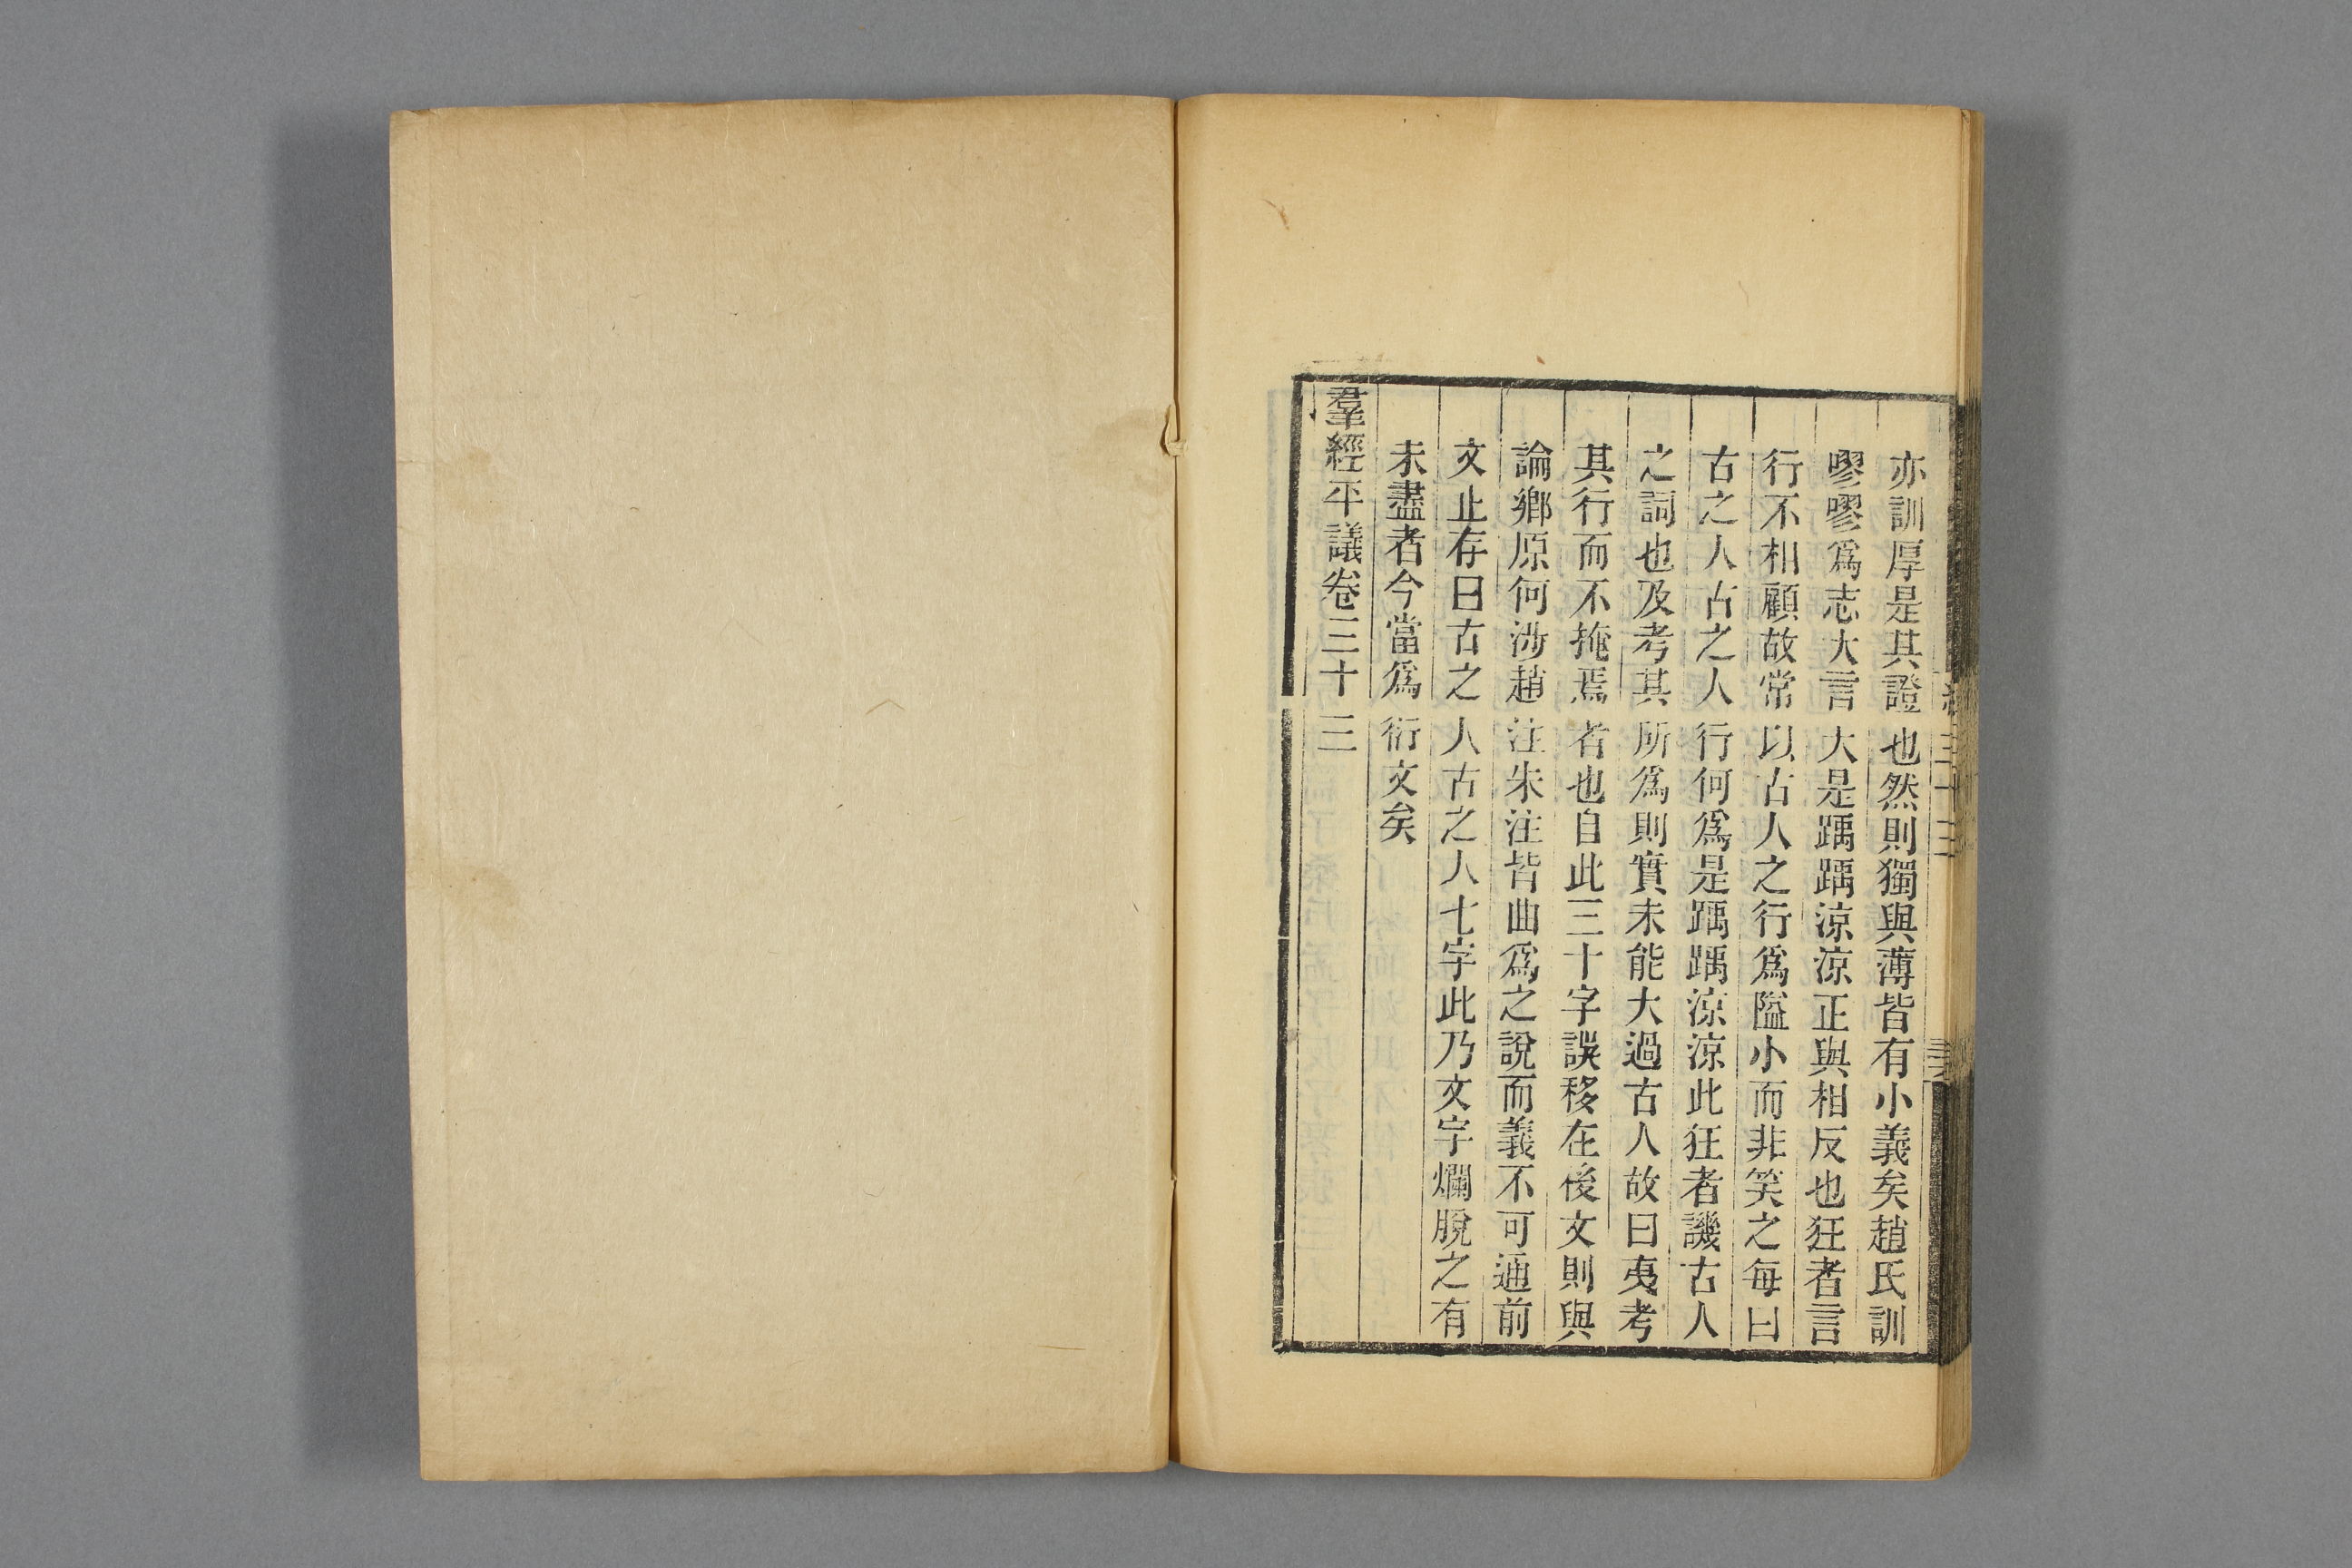 亦訓厚是其證也然則獨與薄皆有小義矣趙氏訓
嘐嘐爲志大言大是踽踽涼涼正與相反也狂者言
行不相顧故常以古人之行爲隘小而非笑之每曰
古之人古之人行何爲是踽踽涼涼此狂者譏古人
之詞也及考其所爲則實未能大過古人故曰夷考
其行而不掩焉者也自此三十字誤移在後文則與
論鄉原何涉趙注朱注皆曲爲之說而義不可通前
文止存曰古之人古之人七字此乃文字爛脫之有
未盡者今當爲衍文矣
羣經平議卷三十三